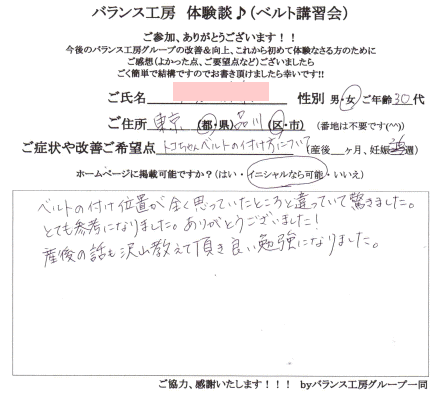 バランス工房 体験談♪(ベルト講習会)
ご参加、ありがとうございます!!
今後のバランス工房グループの改善&向上、これから初めて体験なさる方のために
ご感想(よかった点、ご要望点など)ございましたら
ごく簡単で結構ですのでお書き頂けましたら幸いです!!
ご氏名 性別 男・女 ご年齢30代
ご住所 東京(都・県)品川(区・市) (番地は不要です(^^))
ご症状や改善ご希望点 トコちゃんベルトの付け方について (産後 ヶ月、妊娠 週)
ホームページに掲載可能ですか?(はい・イニシャルなら可能・いいえ)
ベルトの付け位置が全く思っていたところと違っていて驚きました。
とても参考になりました。ありがとうございました!
産後の話も沢山教えて頂き良い勉強になりました。
ご協力、感謝いたします!!! byバランス工房グループ一同